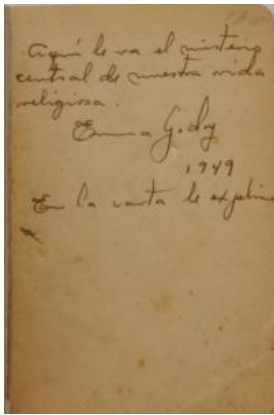 Aquí le va el misterio
central de nuestra vida
religiosa.
Emma Godoy
1949
En la carta le explico